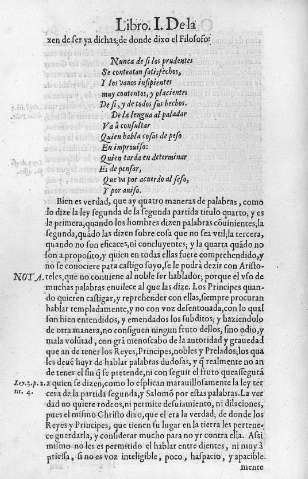 Libro. I. De la
zen de ser ya dichas; de donde dixo el Filosofo:
Nunca de si los prudentes
Se contentan satisfechos,
Y los vanos insipientes
muy contentos, y placientes
De si, y de todos sus hechos.
De la lengua al paladar
Va à consultar
Quien habla cosas de peso
En improuiso:
Quien tarda en determinar
Es de pensar,
Que va por acuerdo al seso,
Y por auiso.
Bien es verdad, que ay quatro maneras de palabras, como
lo dize la ley segunda de la segunda partida titulo quarto, y es
la primera, quando los hombres dizen palabras cōuinientes, la
segunda, quādo las dizen sobre cosa que no sea vtil, la tercera,
quando no son eficaces, ni concluyentes, y la quarta quādo no
son a proposito, y quien en todas ellas fuere comprehendido, y
no se conociere para castigo suyo, se le podrà dezir con Aristo-
NOTA. teles, que no conuiene al noble ser hablador, porque el vso de
muchas palabras enuilece al que las dize. Los Principes quan-
do quieren castigar, y reprehender con ellas, siempre procuran
hablar templadamente, y no con voz desentonada, con lo qual
son bien entendidos, y emendados los subditos; y haziendolo
de otra manera, no consiguen ningun fruto dellos, sino odio, y
mala volūtad, con grā menoscabo de la autoridad y grauedad
que an de tener los Reyes, Principes, nobles y Prelados, los quales
deuē huyr de hablar palabras dudosas, y q̄ realmente no an
de tener el fin q̄ se pretende, ni con seguir el fruto que aseguraràn
quien se dizen, como lo esplican marauillosamente la ley ter
cera de la partida segunda, y Salomō por estas palabras. La ver
dad no quiere rodeos, ni permite desuiamiento, ni dilaciones,
pues el mismo Christo dixo, que el era la verdad, de donde los
Reyes y Principes, que tienen su lugar en la tierra les pertene-
ce guardarla, y considerar mucho para no yr contra ella. Assi
mismo no les es permitido el hablar entre dientes, ni muy à
priessa, si no es voz inteligible, poco, haspacio, y apacible
mente